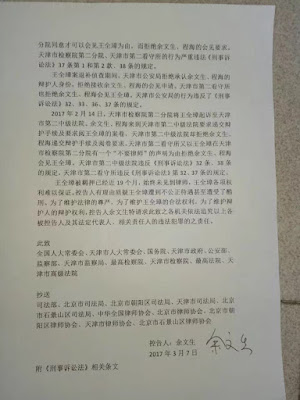 分院同意才可以会见王全璋为由，而拒绝余文生、程海的会见要求。
天津市检察院第二分院、天津市第二看守所的行为严重违法《刑事诉
讼法》37 条第 1 和第 2 款、38 条的规定。
王全璋案退补侦查案间，天津市公安局拒绝承认余文生、程海的
辩护人身份，拒绝接收余文生、程海的会见申请，天津市第二看守所
拒绝余文生、程海会见王全璋。天津市公安局的行为违反了《刑事诉
讼法》32、33、36、37 条的规定。
2017 年 2 月 14 日，天津市检察院第二分院将王全璋起诉至天津
市第二中级法院。余文生、程海来至天津市第二中级法院要求递交辩
护手续及要求阅王全璋的案卷，天津市第二中级法院却拒绝余文生、
程海递交辩护手续及阅卷要求。天津市第二看守所又以王全璋在天津
市检察院第二分院有一个“不要律师”的声明为由拒绝余文生、程海
会见王全璋。天津市第二中级法院违反《刑事诉讼法》32 条、38 条
的规定。天津市第二看守所违反了《刑事诉讼法》第 32、37 条的规定。
王全璋被羁押已经近 19 个月，却始终未见到律师，王全璋各项权
利难以保证。控告人有理由质疑王全璋遭到不公正待遇甚至遭受了酷
刑。为了维护法律的尊严、为了维护王全璋的合法权利、为了维护辩
护人的辩护权利，控告人余文生特请求此致之各机关依法监笕以上各
被控告人及其法定代表人、相关责任人的违法犯罪的之责任。
此致
全国人大常委会、天津市人大常委会、国务院、天津市政府、公安部、
监察部、天津市监察局、最高检察院、天津市检察院、最高法院、天
津市高级法院
抄送
司法部、北京市司法局、北京市朝阳区司法局、天津市司法局、北京
市石景山区司法局、中华全国律师协会、北京市律师协会、北京市朝
阳区律师协会、天津市律师协会、北京市石景山区律师协会
控告人：余文生 余文生
2017 年 3 月 7 日
附《刑事诉讼法》相关条文